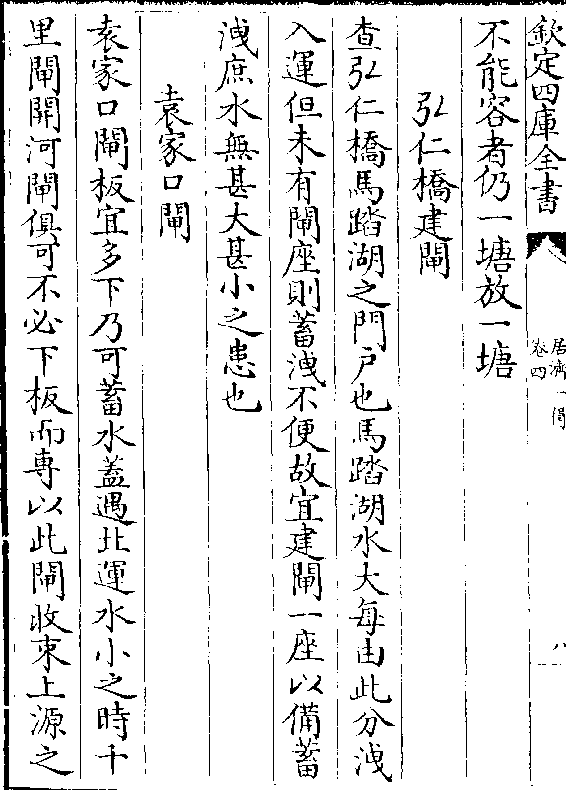 欽定四庫全書
居濟一得
卷四
八
不能容者仍一塘放一塘
弘仁橋建閘
查弘仁橋馬踏湖之門戶也馬踏湖水大每由此分洩
入運但未有閘座則蓄洩不便故宜建閘一座以備蓄
洩庶水無甚大甚小之患也
袁家口閘
袁家口閘板宜多下乃可蓄水蓋遇北運水小之時十
里閘開河閘俱可不必下板而專以此閘收束上源之